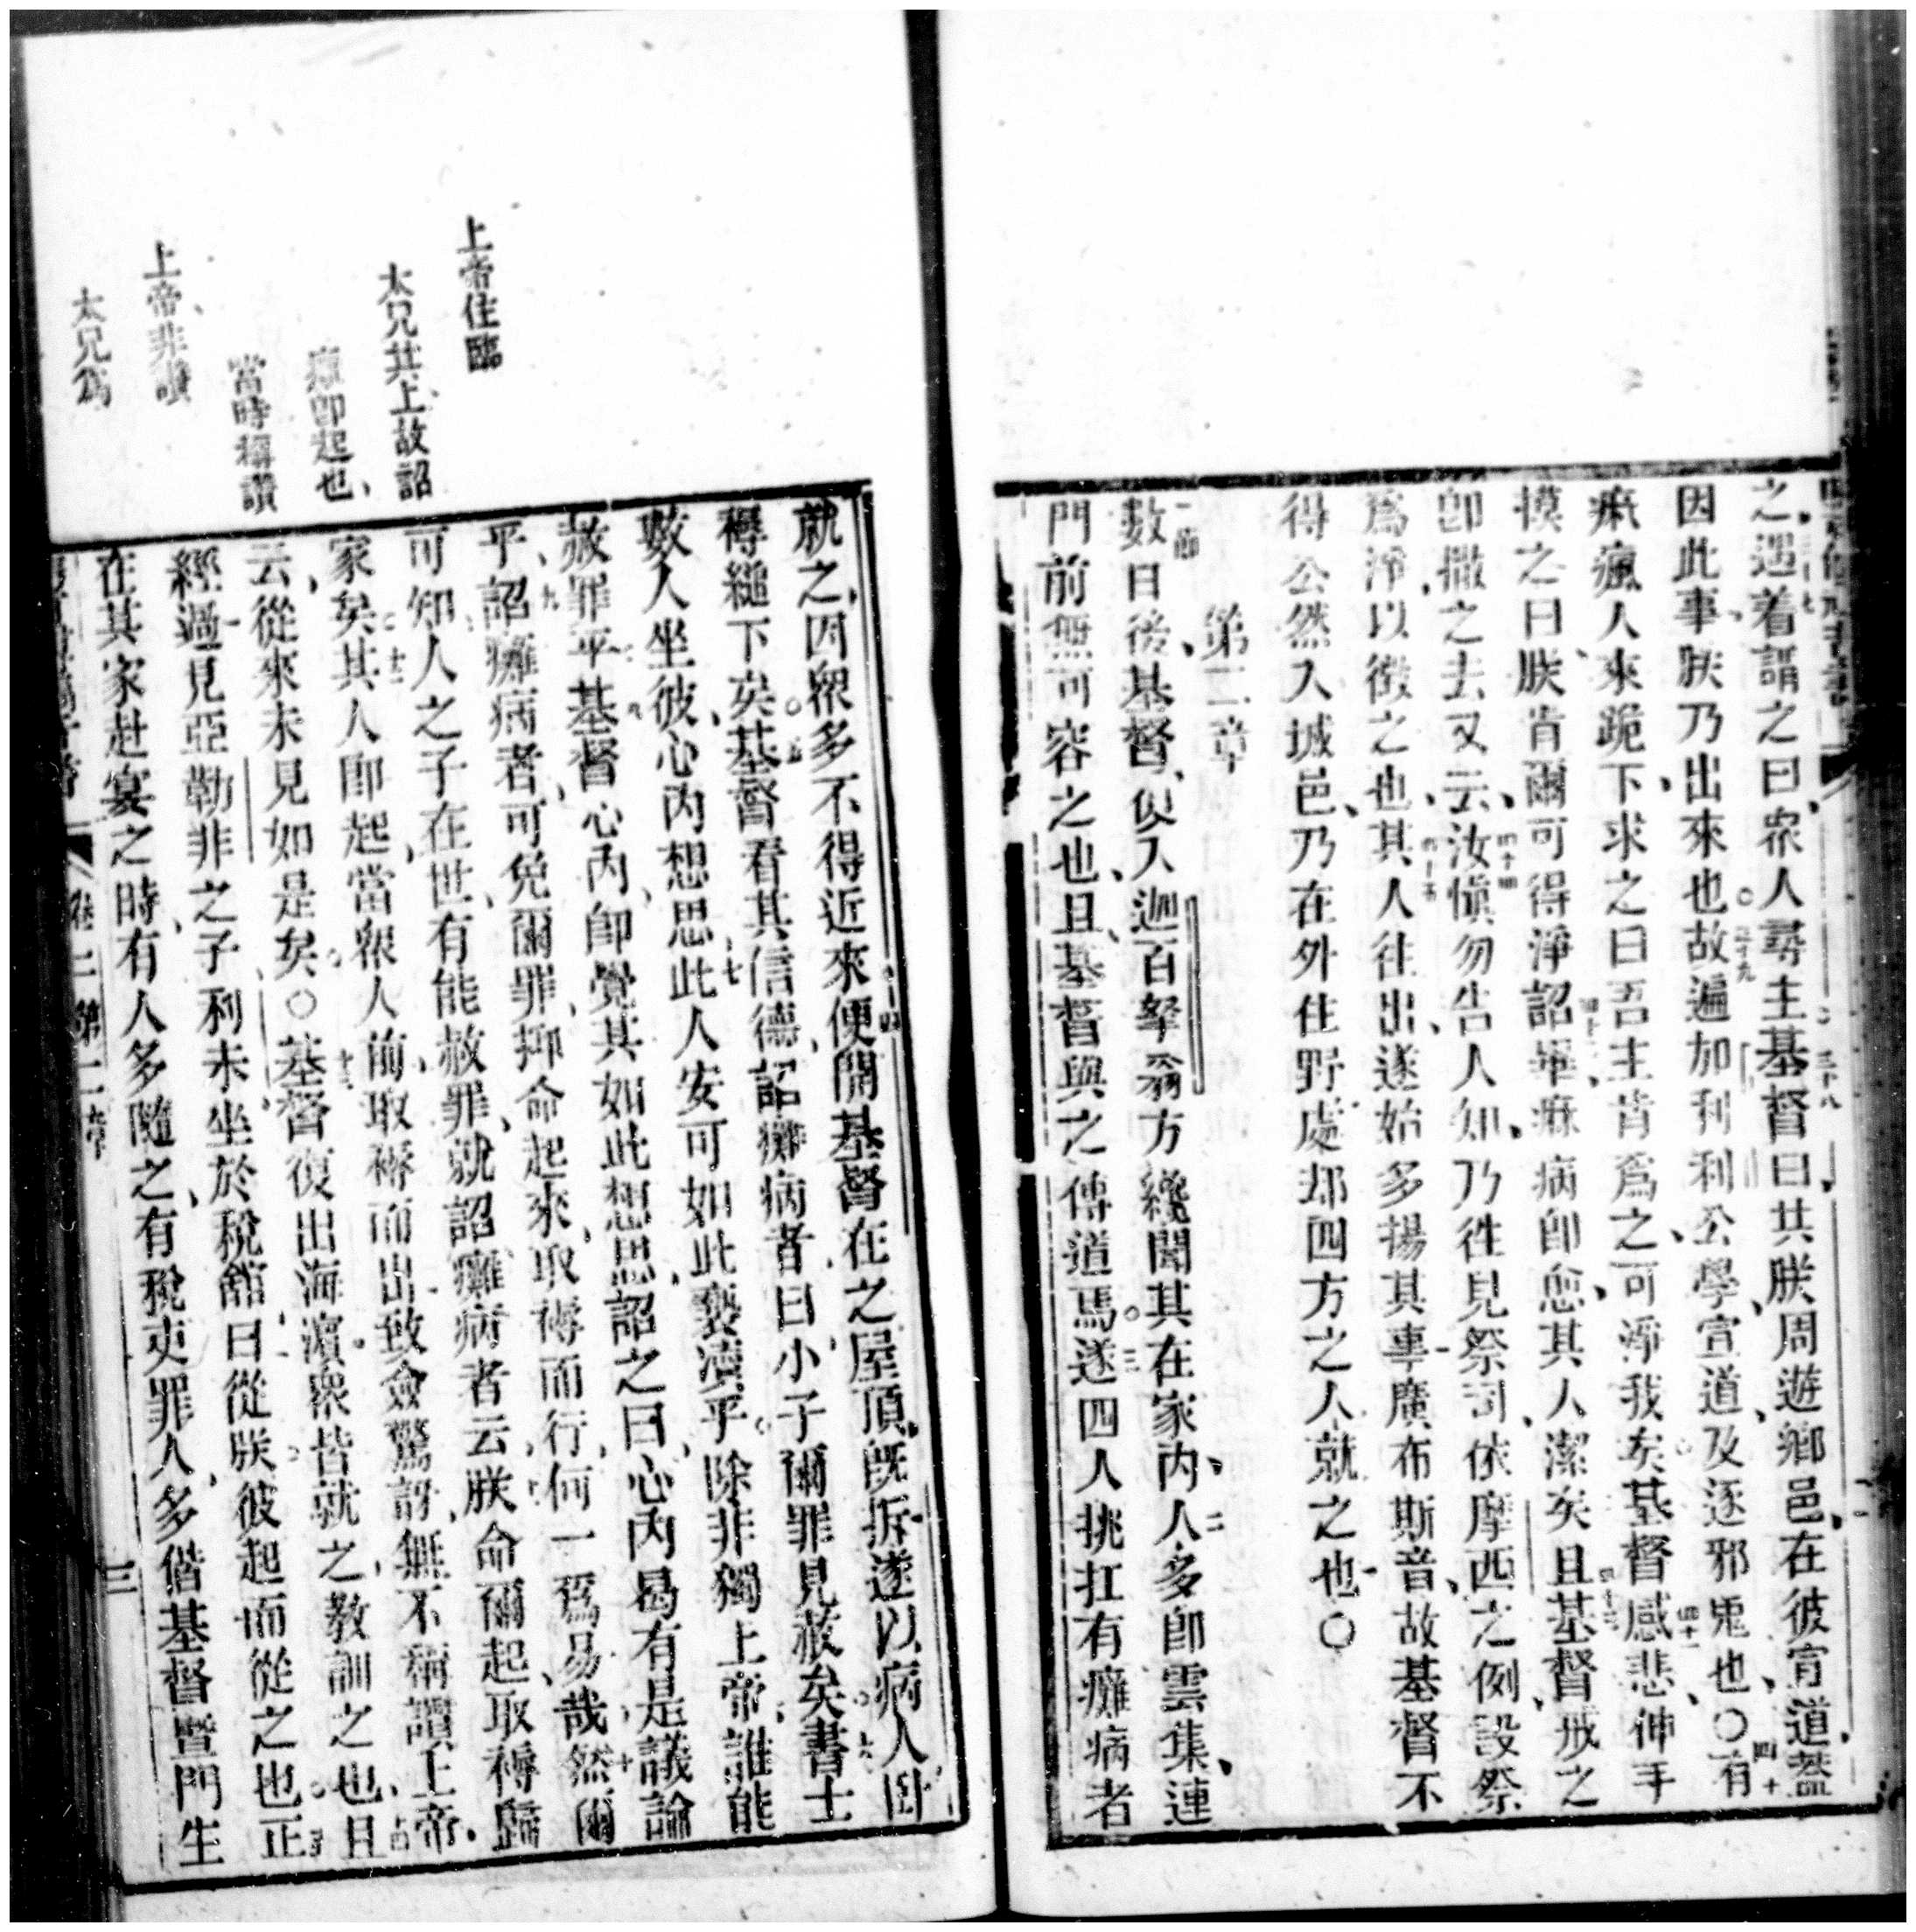 之遇着謂之曰衆人尋主基督曰共朕周遊鄉邑在彼宣道蓋
因此事朕乃出來也故遍加利利公學宣道及逐邪鬼也〇有
痳瘋人來跪下求之曰吾主肯爲之可淨我矣基督感悲伸手
摸之曰朕肯爾可得淨詔畢痳病卽愈其人潔矣且基督戒之
卽撒之去又云汝愼勿吿人知乃徃見祭司依摩西之例設祭
爲淨以徵之也其人往出遂始多揚其事廣布斯音故基督不
得公然入城邑乃在外住野處却四方之人就之也〇
第二章
數日後基督復入迦百拏翁方纔聞其在家內人多卽雲集連
門前無可容之也且基督與之傳道焉遂四人挑扛有癱病者
上帝住臨
太兄其上故詔
癱卽起也
當時稱讚
上帝非讚
太兄爲
就之因衆多不得近來便開基督在之屋頂旣拆遂以病人臥
褥縋下矣基督看其信德詔癱病者曰小子爾罪見赦矣書士
數人坐彼心內想思此人安可如此褻瀆乎除非獨上帝誰能
赦罪乎基督心內卽覺其如此想思詔之曰心內曷有是議論
乎詔癱病者可免爾罪抑命起來取褥而行何一爲易哉然爾
可知人之子在世有能赦罪就詔癱病者云朕命爾起取褥歸
家矣其人卽起當衆人前取褥而出致僉驚訝無不稱讚上帝
云從來未見如是矣〇基督復出海濱衆皆就之教訓之也且
經過見亞勒非之子利未坐於稅舘曰從朕彼起而從之也正
在其家赴宴之時有人多隨之有稅吏罪人多偕基督曁門生
卷二第二章
三